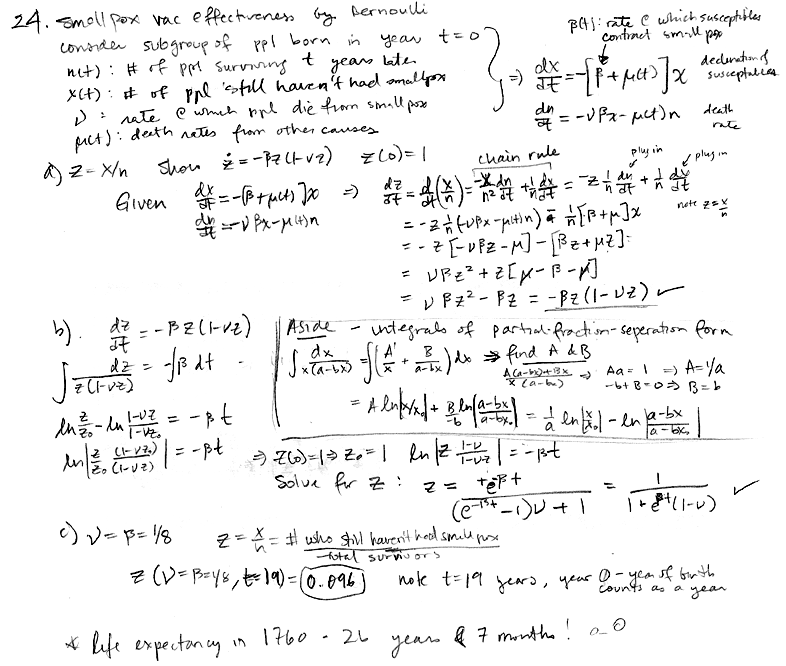 24. Smallpox vac effectiveness by Bernoulli
consider subgroup of ppl born in year t=0
n(t): # of ppl surviving t years later
x(t): # of ppl still haven't had smallpox
ν = rate @ which ppl die from smallpox
μ(t): death rates from other causes
β(t): rate @ which susceptibles
contract small pox
⇒ dx/dt = -[β+μ(t)]x declination of susceptables
dn/dt = -νβx-μ(t)n death rate
a) z = x/n show ż = -βz(1-νz) z(0)=1
Given dx/dt = -[β+μ(t)]x
dn/dt = -νβx-μ(t)n
chain rule
plug in plug in
⇒ dz/dt = d/dt(x/n) = -x/n² dn/dt + 1/n dx/dt = -z 1/n dn/dt + 1/n dx/dt
note z = x/n
= -z 1/n (-νβx-μ(t)n) - 1/n [β+μ]x
= -z[-νβz-μ] - [βz+μz]
= νβz² + z[μ-β-μ]
= νβz² - βz = -βz(1-νz) ✓
b). dz/dt = -βz(1-νz)
∫ dz/z(1-νz) = -∫β dt
ln z/z₀ - ln 1-νz/1-νz₀ = -βt
ln|z/z₀ (1-νz₀)/(1-νz)| = -βt
Aside - integrals of partial-fraction-seperation form
∫ dx/x(a-bx) = ∫(A/x + B/a-bx) dx ⇒ find A & B
A(a-bx)+Bx / x(a-bx) ⇒ Aa=1 ⇒ A=1/a
-b+B=0 ⇒ B=b
= A ln|x/x₀| + B/-b ln|a-bx/a-bx₀| = 1/a ln|x/x₀| - ln|a-bx/a-bx₀|
⇒ z(0)=1 ⇒ z₀=1 ln|z 1-ν/1-νz| = -βt
Solve for z: z = +e^-βt / (e^-βt -1)ν+1 = 1 / 1+e^βt(1-ν) ✓
c) ν=β=1/8 z = x/n = # who still haven't had small pox / total survivors
z(ν=β=1/8, t=19) = 0.096 note t=19 years, year 0 - year of birth
counts as a year
* life expectancy in 1760 - 26 years & 7 months! o_O